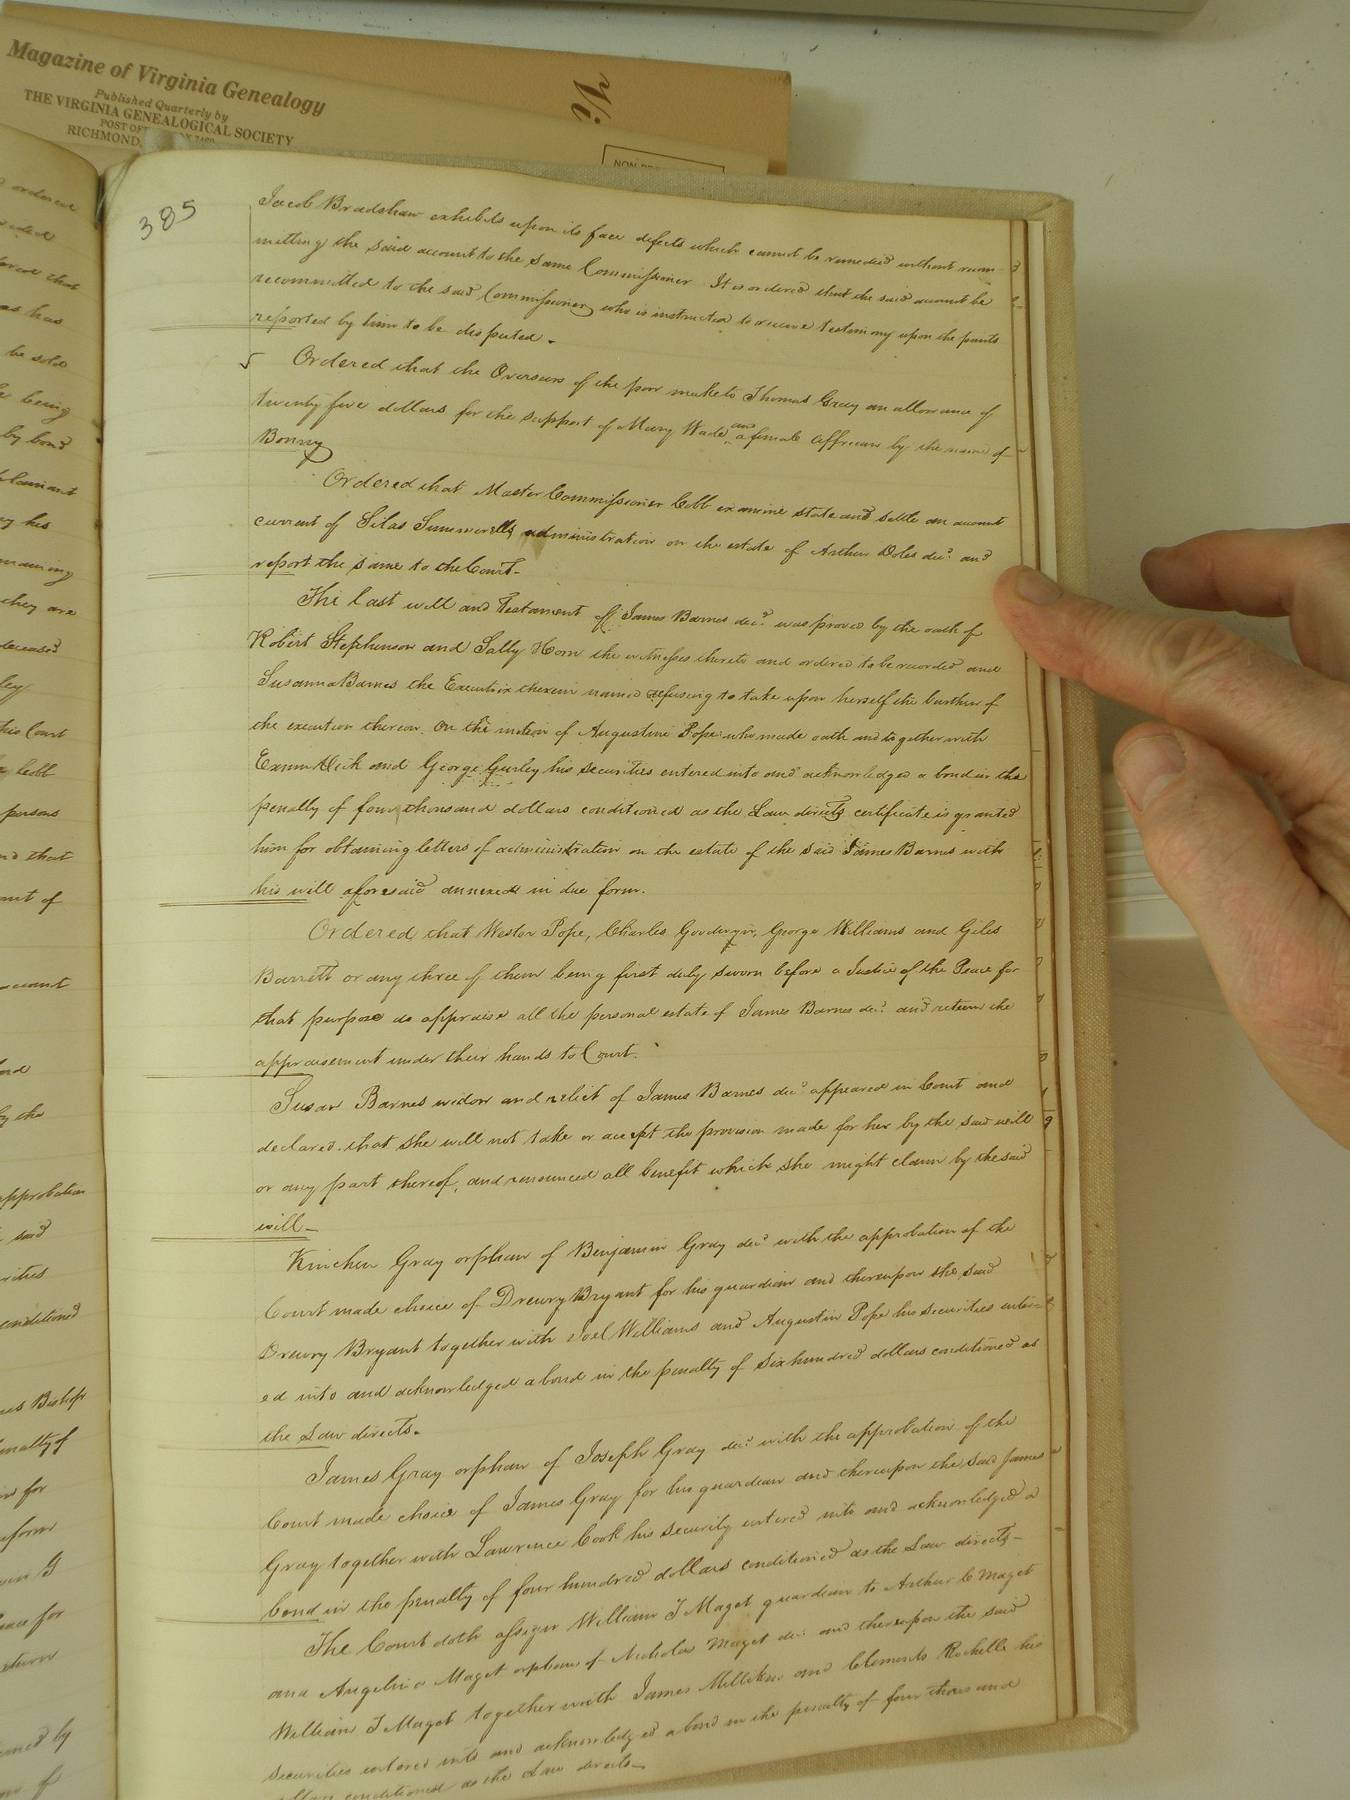 Magazine of Virginia Genealogy
Published Quarterly by
THE VIRGINIA GENEALOGICAL SOCIETY
POST OF
RICHMOND,
385
Jacob Bradshaw exhibits upon its face defects which cannot be remedied without recom-
mitting the said account to the same Commissioner. It is ordered that the said account be
recommitted to the said Commissioner, who is instructed to receive testimony upon the points
reported by him to be disputed.
Ordered that the Overseers of the poor make to Thomas Gray an allowance of
twenty five dollars for the support of Mary Wade and a female Affrican by the name of
Bonny
Ordered that Master Commissioner Cobb examine state and settle an account
current of Silas Summerells administration on the estate of Arthur Doles decd. and
report the same to the Court.
The last will and Testament of James Barnes decd. was proved by the oath of
Robert Stephenson and Sally Horn the witnesses thereto and ordered to be recorded and
Susanna Barnes the Executrix therein named refusing to take upon herself the burthen of
the execution thereof. On the motion of Augustine Pope who made oath and together with
Exum Eley and George Gurley his securities entered into and acknowledged a bond in the
penalty of four thousand dollars conditioned as the Law directs certificate is granted
him for obtaining letters of administration on the estate of the said James Barnes with
his will aforesaid annexed in due form.
Ordered that Weston Pope, Charles Goodwyn, George Williams and Giles
Barrett or any three of them being first duly sworn before a Justice of the Peace for
that purpose do appraise all the personal estate of James Barnes decd. and return the
appraisement under their hands to Court.
Susan Barnes widow and relict of James Barnes decd. appeared in Court and
declared that she will not take or accept the provision made for her by the said will
or any part thereof, and renounced all benefit which she might claim by the said
will
Kinchen Gray orphan of Benjamin Gray decd. with the approbation of the
Court made choice of Drewry Bryant for his guardian and thereupon the said
Drewry Bryant together with Joel Williams and Augustin Pope his securities enter-
ed into and acknowledged a bond in the penalty of six hundred dollars conditioned as
the Law directs.
James Gray orphan of Joseph Gray decd. with the approbation of the
Court made choice of James Gray for his guardian and thereupon the said James
Gray together with Lawrence Cook his security entered into and acknowledged a
bond in the penalty of four hundred dollars conditioned as the Law directs
The Court doth assign William T Maget guardian to Arthur C Maget
and Angelina Maget orphans of Nicholas Maget decd. and thereupon the said
William T Maget together with James Millikin and Clements Rochelle his
securities entered into and acknowledged a bond in the penalty of four thousand
conditioned as the Law directs